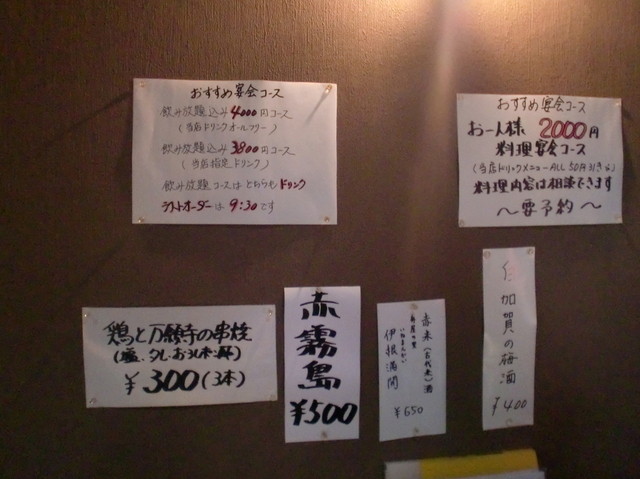 おすすめ宴会コース
飲み放題込み4000円コース
(当店ドリンクオールフリー)
飲み放題込み3800円コース
(当店指定ドリンク)
飲み放題コースはどちらもドリンク
ラストオーダーは9:30です
おすすめ宴会コース
お一人様 2000円
料理宴会コース
(当店ドリンクメニューALL 50円引き)
料理内容は相談できます
〜要予約〜
鶏と万願寺の串焼
¥300(3本)
赤霧島
¥500
赤米(古代米)酒
伊根満開
¥650
加賀の梅酒
¥400